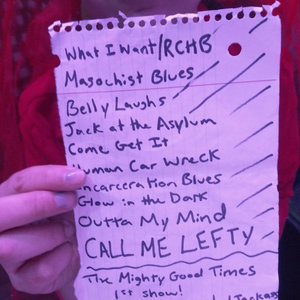 What I Want/RCHB
Masochist Blues
Belly Laughs
Jack at the Asylum
Come Get It
Human Car Wreck
Incarceration Blues
Glow in the Dark
Outta My Mind
CALL ME LEFTY
The Mighty Good Times
1st show!